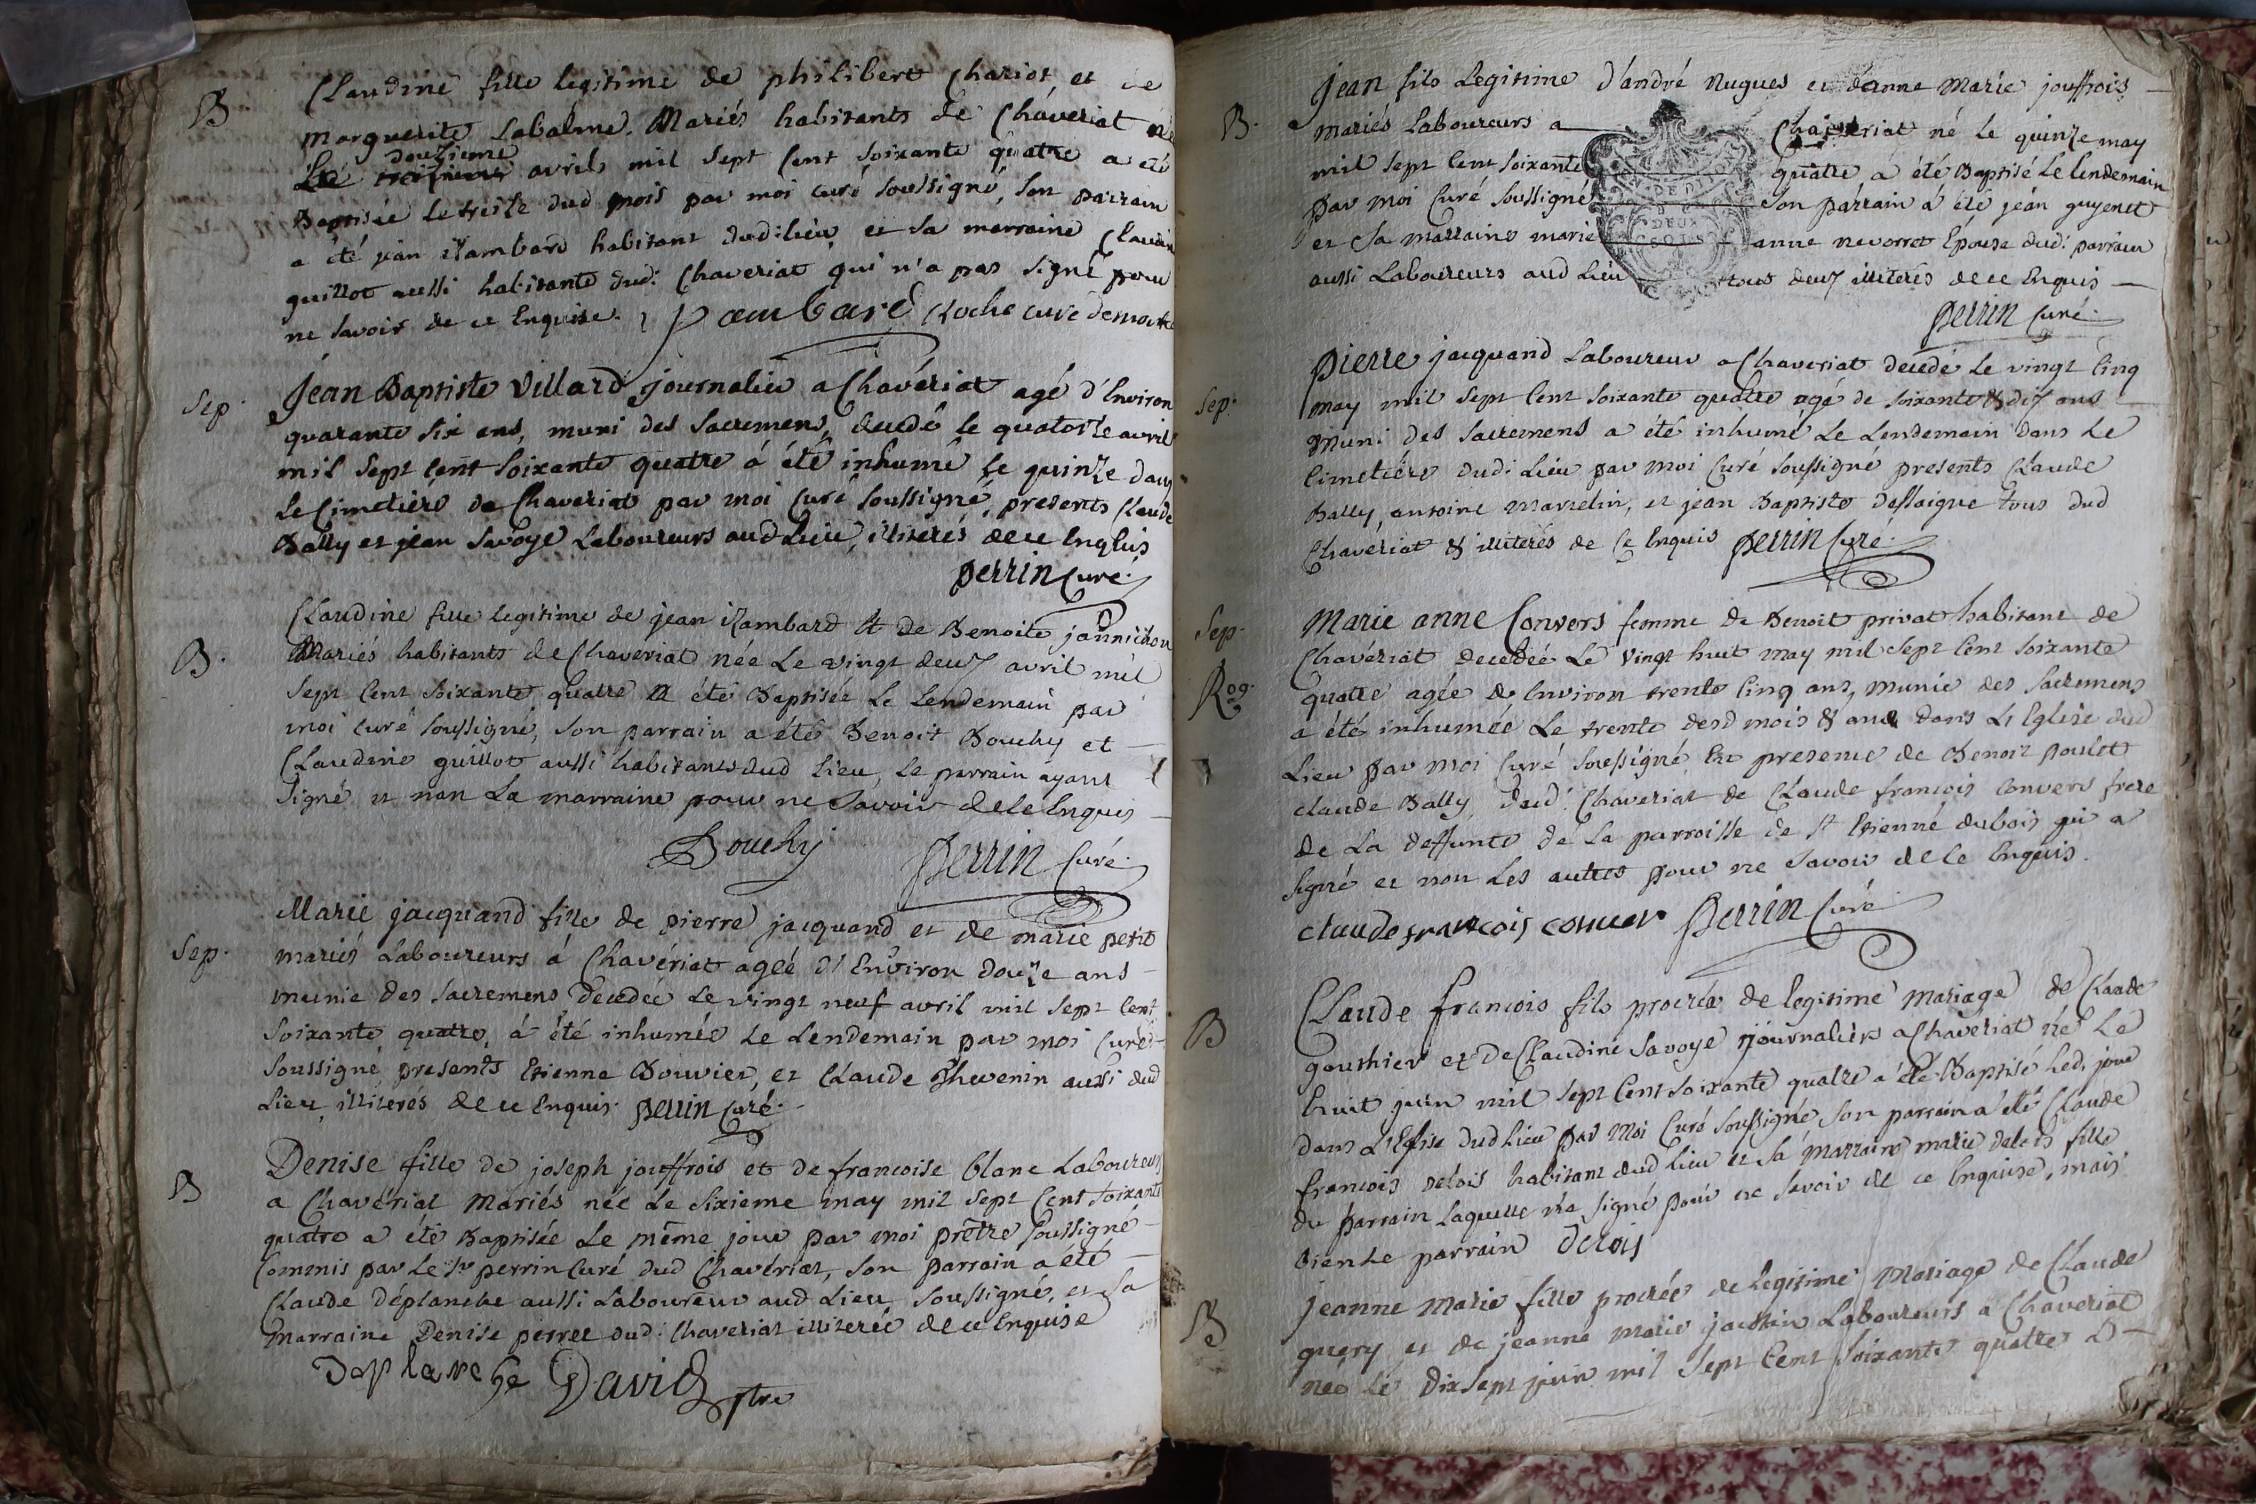 B
Claudine fille legitime de philibert Chariot et de
marguerite Labalme. Mariés habitants de Chaveriat née
Le douzieme avril mil sept Cent soixante quatre a été
Baptisée le treize dud mois par moi curé soussigné, son parrain
a été jean Rambard habitant dudi lieu, et sa marraine Claudine
guillot aussi habitante dud: Chaveriat qui n'a pas signé pour
ne savoir de ce Enquise. Rambard Roche curé de
Sep.
Jean Baptiste Villard journalier a Chavériat agé d'Environ
quarante six ans, muni des Sacremens, decedé le quatorze avril
mil sept Cent soixante quatre a été inhumé le quinze dans
Le Cimetiere de Chaveriat par moi Curé soussigné, presents Claude
Bally et jean Savoye Laboureurs aud Lieu, illiterés de ce Enquis
perrin Curé.
B.
Claudine fille legitime de jean Rambard & de Benoite jannichon
Mariés habitants de Chaveriat née Le vingt deux avril mil
sept Cent soixante quatre a été Baptisée Le Lendemain par
moi curé soussigné, son parrain a été Benoit Bouchy et
Claudine guillot aussi habitants dud Lieu, le parrain ayant
signé et non La marraine pour ne Savoir de ce Enquis
Bouchy perrin Curé.
Sep.
Marie jacquand fille de pierre jacquand et de marie petit
mariés Laboureurs à Chavériat agée d'Environ Douze ans
munie des Sacremens Decedée Le vingt neuf avril mil sept Cent
soixante quatre, à été inhumée Le Lendemain par moi Curé
Soussigné presents Etienne Bouvier, et Claude Thevenin aussi dud
Lieu illiterés de ce Enquis. perrin Curé.
B
Denise fille de joseph jouffrois et de francoise blanc Laboureurs
a Chavériat Mariés née Le Sixieme may mil sept Cent soixante
quatre a été Baptisée Le même jour par moi prêtre soussigné
Commis par Le Sr perrin Curé dud Chavériat, son parrain a été
Claude Déplanche aussi Laboureur aud Lieu soussigné, et sa
marraine Denise perret dud: Chaveriat illiterée de ce Enquise
Deplanche David ptre
B.
Jean fils Legitime d'andré nugues et d'anne Marie jouffrois
mariés Laboureurs a Chaveriat né le quinze may
mil sept Cent soixante quatre a été Baptisé Le Lendemain
par moi Curé soussigné son parrain a été jean guyenet
et Sa marraine marie anne nevorret Epouse dud: parrain
aussi Laboureurs aud Lieu tous deux illiterés de ce Enquis
DEUX
SOLS
perrin Curé.
Sep.
pierre jacquand Laboureur a Chaveriat decedé Le vingt Cinq
may mil sept Cent soixante quatre agé de soixante & dix ans
muni des Sacremens a été inhumé Le Lendemain dans Le
Cimetiere dudi Lieu par moi Curé soussigné presents Claude
Bally, antoine marcelin, et jean Baptiste dessaigne tous dud
Chaveriat & illiterés de Ce Enquis perrin Curé.
Sep.
Rog.
Marie anne Convers femme de Benoit privat habitant de
Chavériat decedée Le vingt huit may mil sept Cent soixante
quatre agée de Environ trente Cinq ans, munie des sacremens
a été inhumée Le trente desd mois & an dans L'Eglise dud
Lieu par moi Curé soussigné En presence de Benoit poulet
claude Bally dud: Chaveriat de Claude francois Convers frere
de La deffunte de La parroisse de St Etienne dubois qui a
signé et non Les autres pour ne savoir de ce Enquis.
claude francois conver perrin Curé
B
Claude francois fils procréé de legitime mariage de Claude
gouthier et de Claudine Savoye journaliers a Chaveriat né Le
huit juin mil sept Cent soixante quatre a été Baptisé led. jour
dans L'Eglise dud Lieu par moi Curé soussigné son parrain a été Claude
francois delois habitant dud Lieu et sa marraine marie delois fille
du parrain laquelle n'a signé pour ne savoir de ce Enquise, mais
bien le parrain delois
B
jeanne marie fille procréée de legitime Mariage de Claude
query et de jeanne marie Laboureurs a Chaveriat
née le dix sept juin mil sept Cent soixante quatre